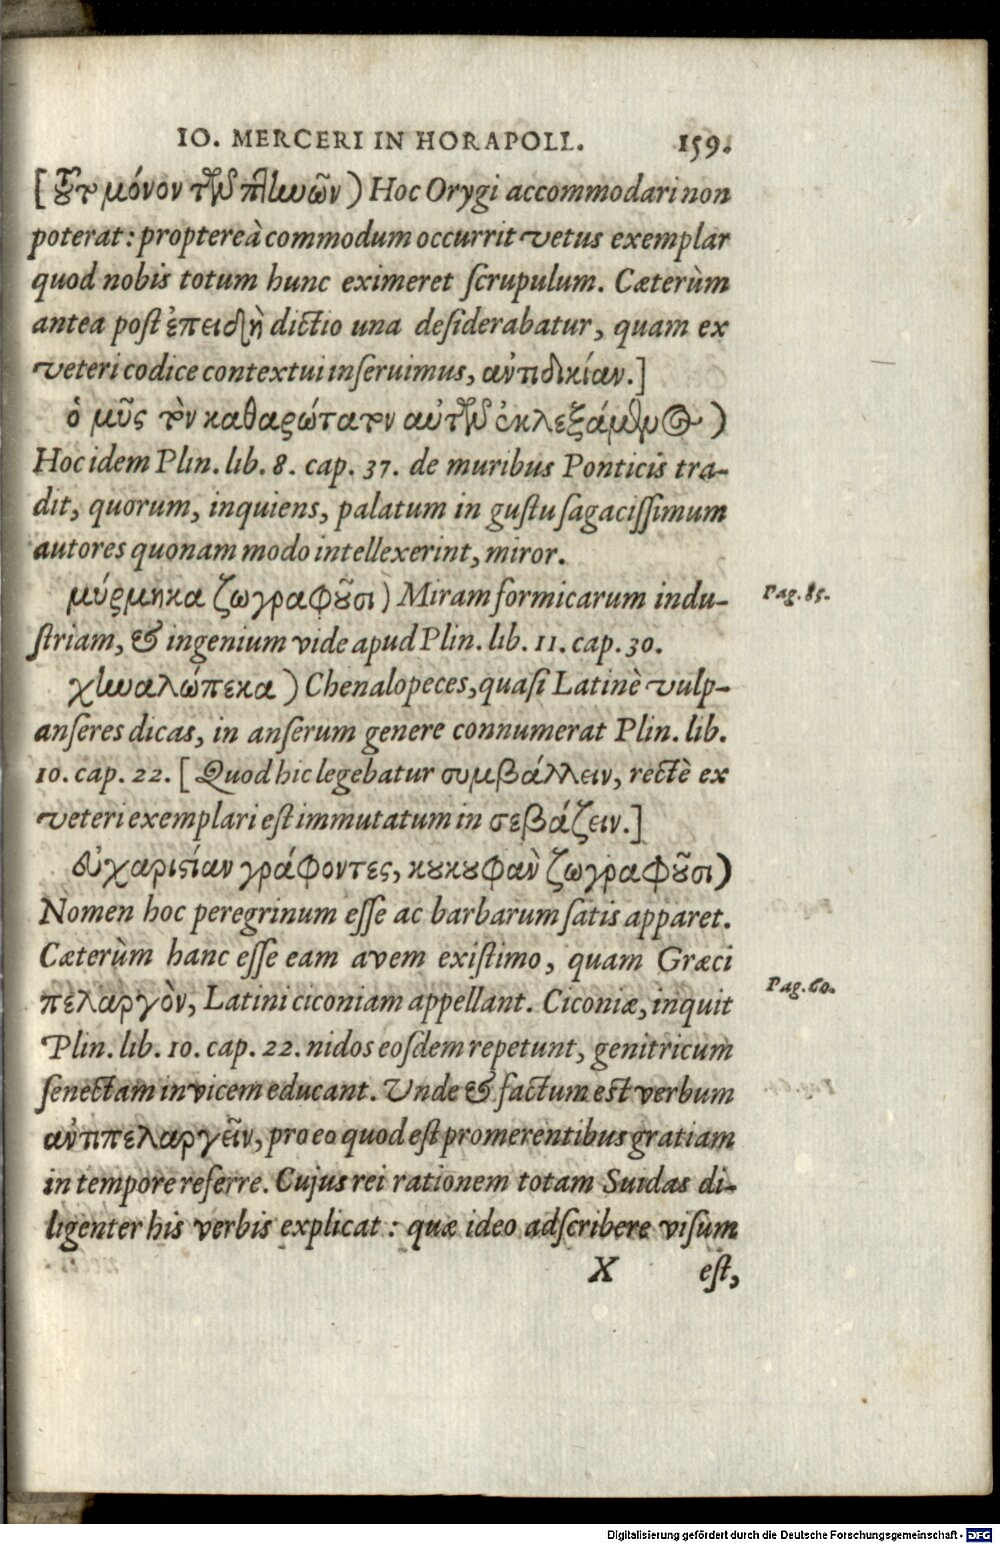 IO. MERCERI IN HORAPOLL. 159.
[τοῦτο μόνον τῶν πτηνῶν) Hoc Orygi accommodari non
poterat: propterea commodum occurrit vetus exemplar
quod nobis totum hunc eximeret scrupulum. Cæterùm
antea post ἐπειδὴ dictio una desiderabatur, quam ex
veteri codice contextui inseruimus, ἀντιδικίαν.]
ὁ μῦς τὸν καθαρώτατον αὐτῶν ἐκλεξάμενος)
Hoc idem Plin. lib. 8. cap. 37. de muribus Ponticis tra-
dit, quorum, inquiens, palatum in gustu sagacissimum
autores quonam modo intellexerint, miror.
μύρμηκα ζωγραφοῦσι) Miram formicarum indu- Pag. 85.
striam, & ingenium vide apud Plin. lib. 11. cap. 30.
χηναλώπεκα) Chenalopeces, quasi Latinè vulp-
anseres dicas, in anserum genere connumerat Plin. lib.
10. cap. 22. [Quod hic legebatur συμβάλλειν, rectè ex
veteri exemplari est immutatum in σεβάζειν.]
εὐχαριστίαν γράφοντες, κουκουφαν ζωγραφοῦσι)
Nomen hoc peregrinum esse ac barbarum satis apparet.
Cæterùm hanc esse eam avem existimo, quam Græci
πελαργὸν, Latini ciconiam appellant. Ciconiæ, inquit Pag. 60.
Plin. lib. 10. cap. 22. nidos eosdem repetunt, genitricum
senectam invicem educant. Unde & factum est verbum
ἀντιπελαργεῖν, pro eo quod est promerentibus gratiam
in tempore referre. Cujus rei rationem totam Suidas di-
ligenter his verbis explicat: quæ ideo adscribere visum
X est,
Digitalisierung gefördert durch die Deutsche Forschungsgemeinschaft - DFG